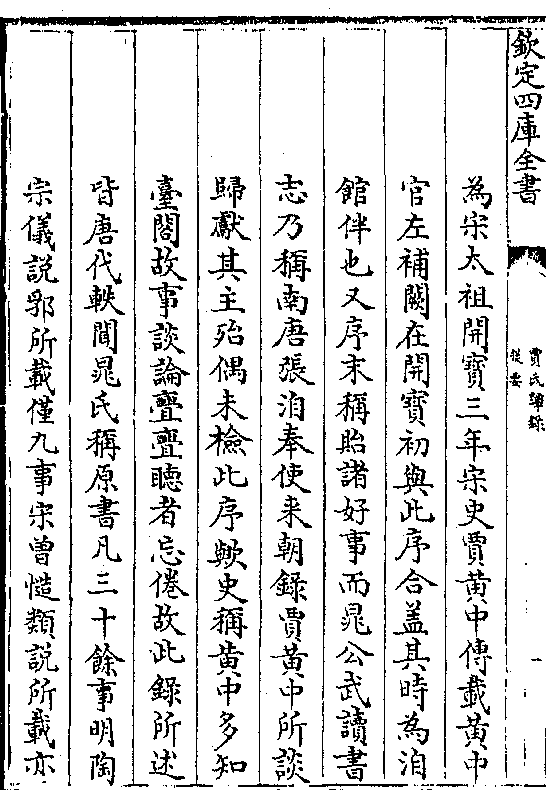 欽定四庫全書
賈氏譚錄
提要
一
為宋太祖開寳三年宋史賈黄中傳載黄中
官左補闕在開寳初與此序合盖其時為洎
館伴也又序末稱貽諸好事而晁公武讀書
志乃稱南唐張洎奉使来朝録賈黄中所談
歸獻其主殆偶未檢此序歟史稱黄中多知
臺閣故事談論亹亹聽者忘倦故此録所述
皆唐代軼聞晁氏稱原書凡三十餘事明陶
宗儀説郛所載僅九事宋曾慥類説所載亦